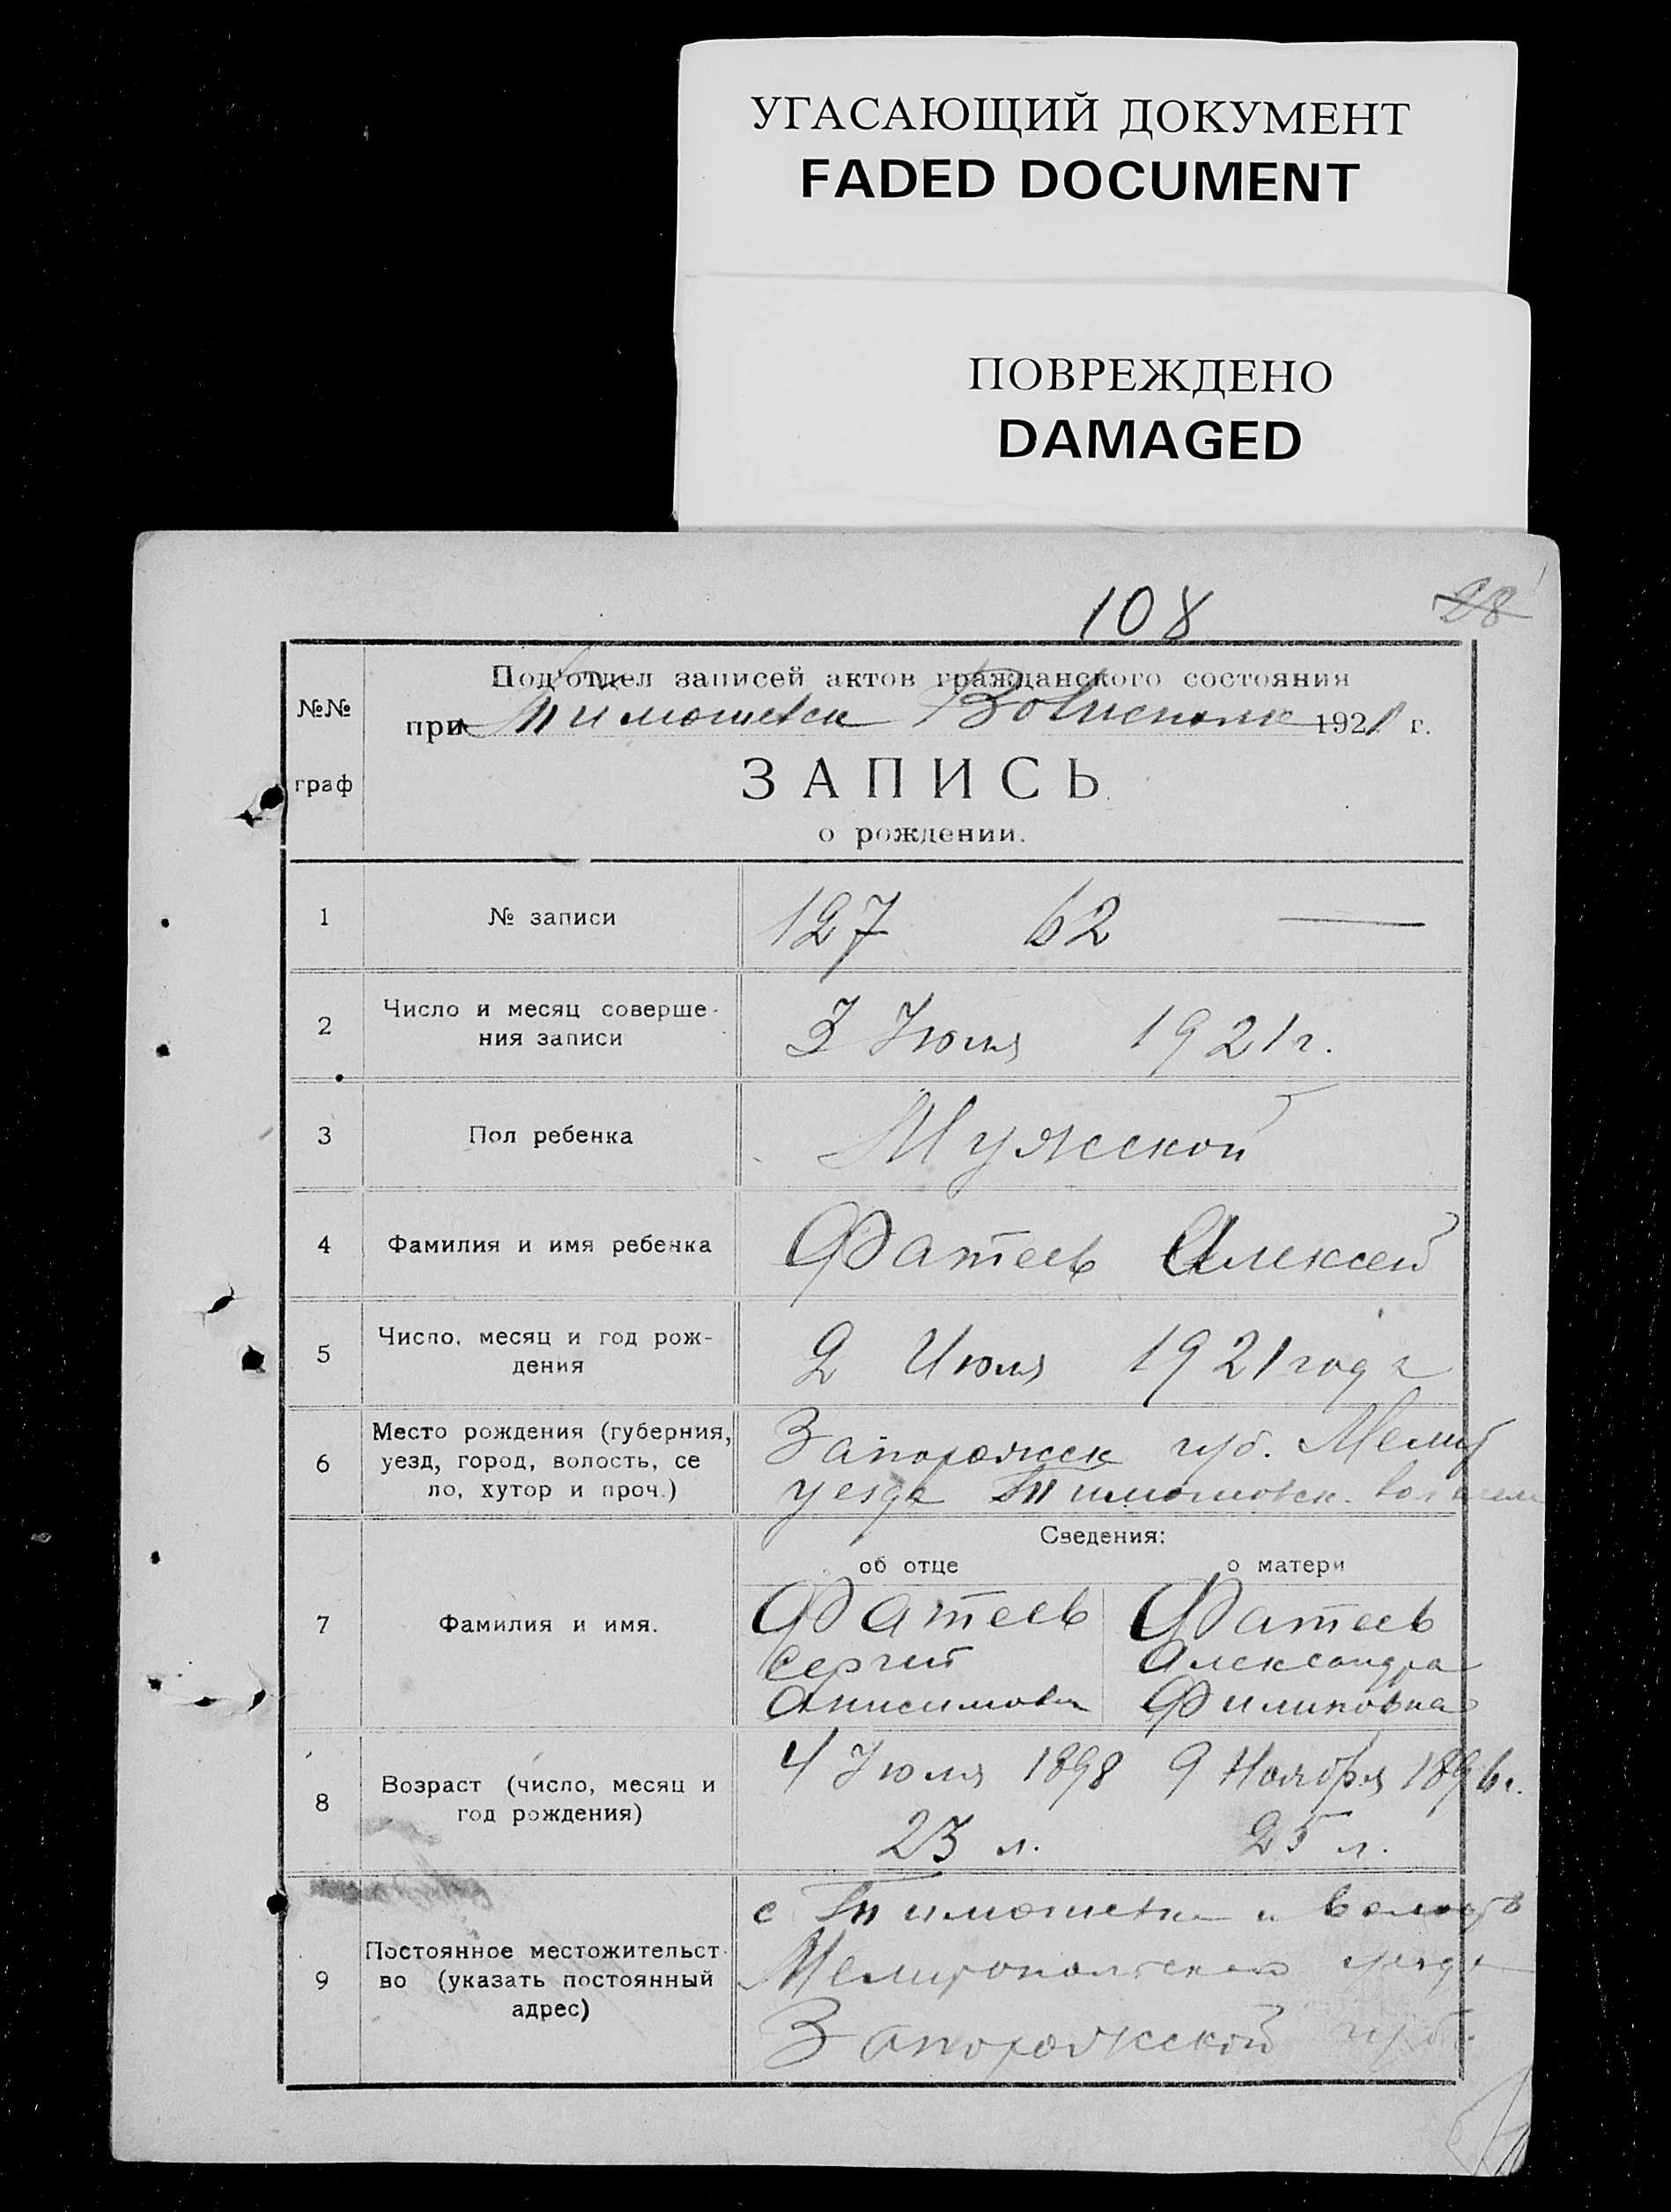 УГАСАЮЩИЙ ДОКУМЕНТ
FADED DOCUMENT
ПОВРЕЖДЕНО
DAMAGED
108 28
№№ граф
Подотдел записей актов гражданского состояния
при Тимошевск 1921 г.
ЗАПИСЬ
о рождении.
1 № записи 127 62 —
2 Число и месяц соверше-
ния записи 3 Июля 1921 г.
3 Пол ребенка Мужской
4 Фамилия и имя ребенка Фатеев Алексей
5 Число, месяц и год рож-
дения 2 Июля 1921 года
6 Место рождения (губерния,
уезд, город, волость, се
ло, хутор и проч.)
Запорожск губ. Мелит
уезда Тимошовск.
Сведения:
об отце о матери
7 Фамилия и имя.
Фатеев Фатеев
Сергий Александра
Анисимов Филиповна
8 Возраст (число, месяц и
год рождения)
4 Июля 1898 9 Ноября 1896 г.
23 л. 25 л.
9 Постоянное местожительст-
во (указать постоянный
адрес)
с
Мелитопольского уезда
Запорожской губ.